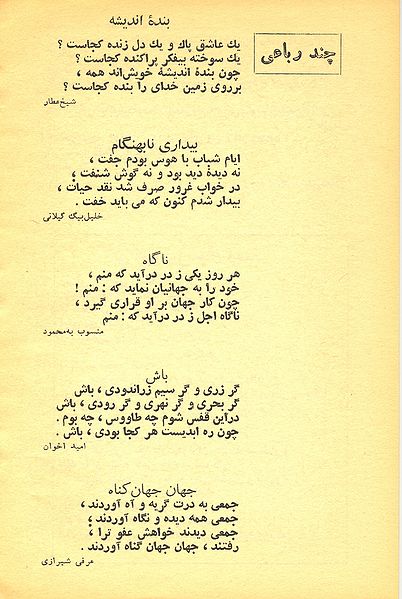 چند رباعی
بندهٔ اندیشه
یك عاشق پاك و یك دل زنده کجاست ؟
یك سوخته بیفکر پراکنده کجاست ؟
چون بندهٔ اندیشهٔ خویش‌اند همه ،
برروی زمین خدای را بنده کجاست ؟
شیخ‌عطار
بیداری نابهنگام
ایام شباب با هوس بودم جفت ،
نه دیدهٔ دید بود و نه گوش شنفت ،
در خواب غرور صرف شد نقد حیات ،
بیدار شدم کنون که می باید خفت .
خلیل‌بیگ گیلانی
ناگاه
هر روز یکی ز در درآید که منم ،
خود را به جهانیان نماید که : منم !
چون کار جهان بر او قراری گیرد ،
ناگاه اجل ز در درآید که : منم
منسوب به‌محمود
باش
گر زری و گر سیم زراندودی ، باش
گر بحری و گر نهری و گر رودی ، باش
دراین قفس شوم چه طاووس ، چه بوم .
چون ره ابدیست هر کجا بودی ، باش .
امید اخوان
جهان جهان‌گناه
جمعی به درت گریه و آه آوردند ،
جمعی همه دیده و نگاه آوردند ،
جمعی دیدند خواهش عفو ترا ،
رفتند ، جهان جهان گناه آوردند .
عرفی شیرازی